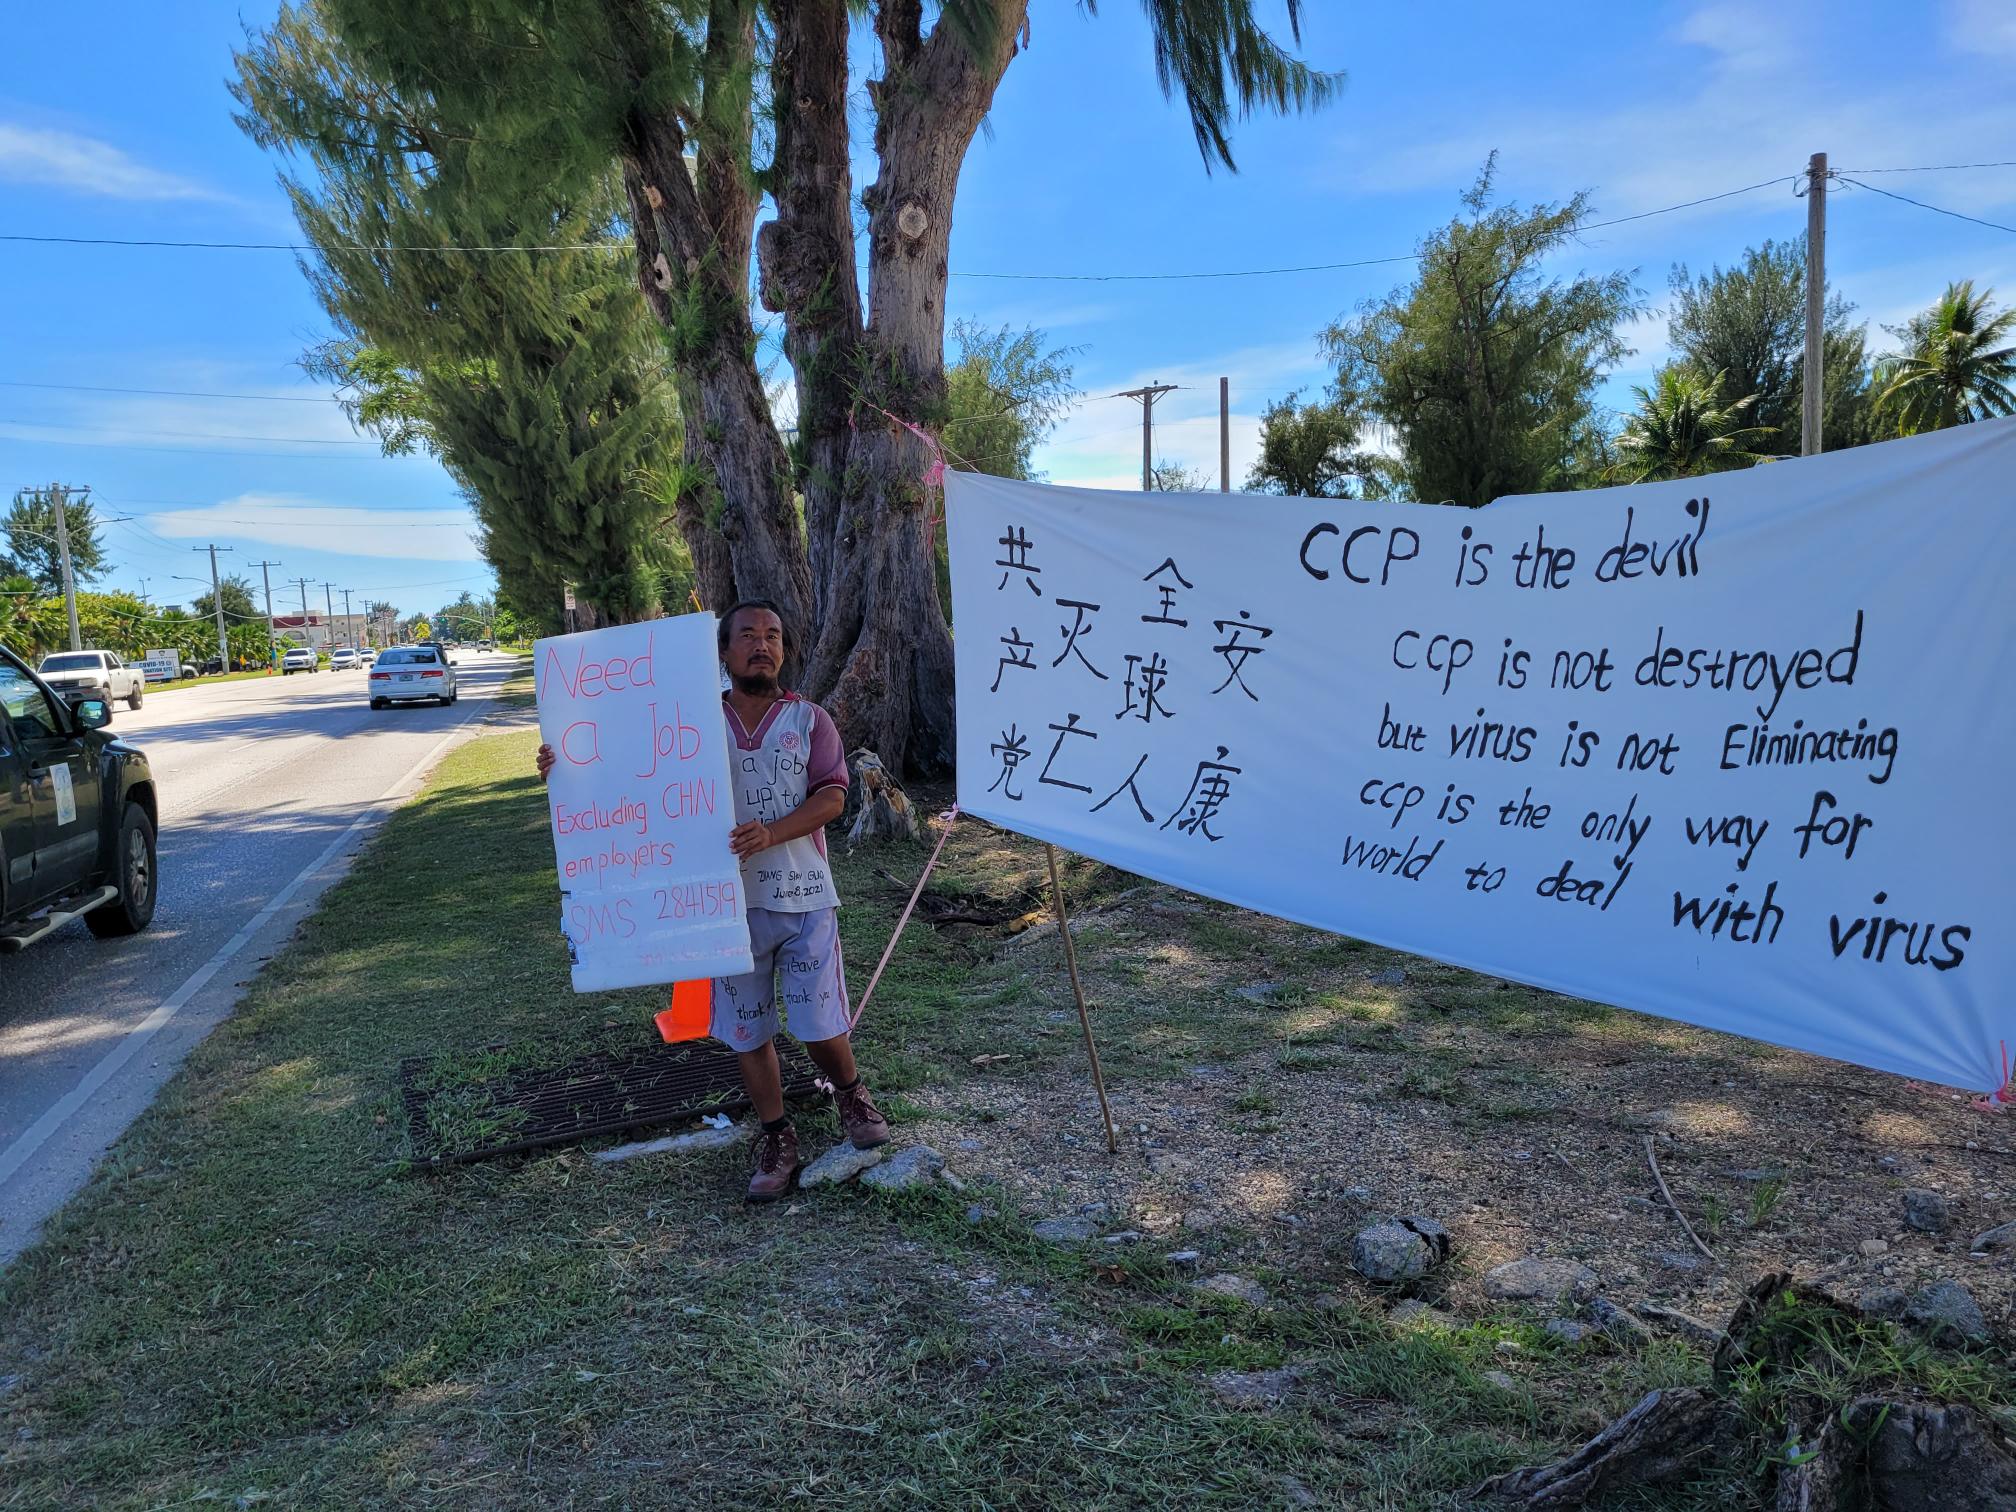 Need
a Job
Excluding CHN
employers
SMS 2841519
a job
up to
June 8, 2021
leave
thank you
共产党
灭亡
全球人
安康
CCP is the devil
CCP is not destroyed
but virus is not Eliminating
CCP is the only way for
world to deal with virus
COVID-19